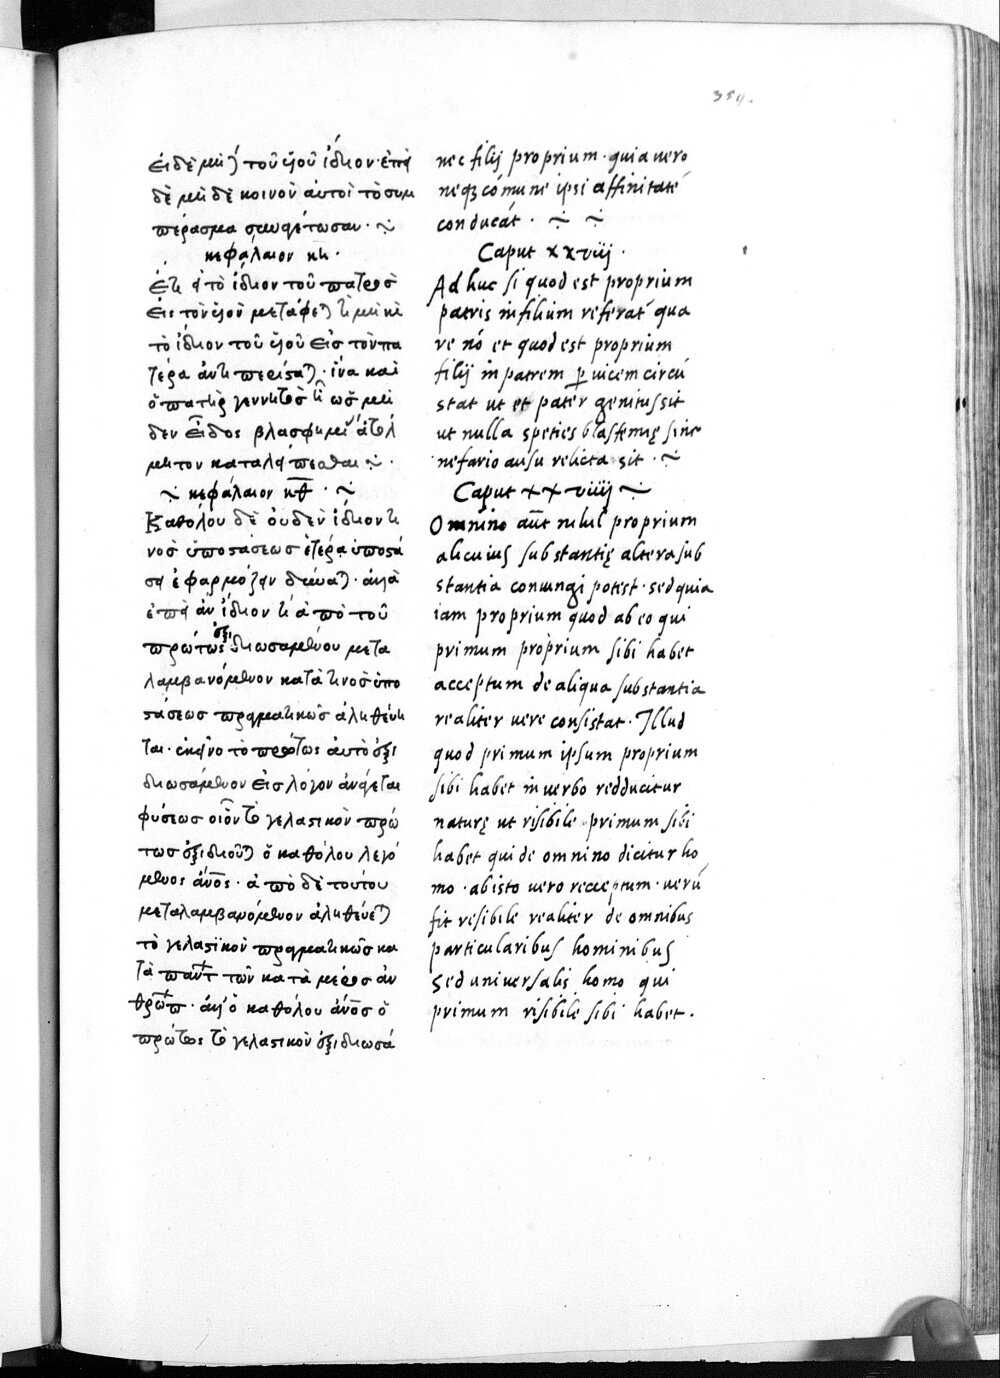 359.
εἰ δὲ μὴ τοῦ υἱοῦ ἴδιον· ἐπεὶ
δὲ μὴ δὲ κοινὸν αὐτοὶ τὸ συμ
πέρασμα συναγέτωσαν·
κεφάλαιον κη·
ἔτι εἰ τὸ ἴδιον τοῦ πατρὸς
εἰς τὸν υἱὸν μεταφέ
τὸ ἴδιον τοῦ υἱοῦ εἰς τὸν πα
τέρα ἀντιπερι · ἵνα καὶ
ὁ πατὴρ γεννητὸς ὡς μη
δὲν εἶδος βλασφημί ἀτολ
μητον καταλείπεσθαι·
κεφάλαιον κθ·
Καθόλου δὲ οὐδὲν ἴδιον τι
νος ὑποστάσεως ἑτέρα ὑποστά
σει ἐφαρμόζειν δύνα · ἀλλὰ
ἐπεὶ ἂν ἴδιον ἀπὸ τοῦ
πρώτως ἐξιδιωσαμένου μετα
λαμβανόμενον κατά τινος ὑπο
στάσεως πραγματικῶς ἀληθεύη
ται· ἐκεῖνο τὸ πρώτως αὐτὸ ἐξι
διωσάμενον εἰς λόγον ἀνάγεται
φύσεως οἷον τὸ γελαστικὸν πρώ
τως ἐξιδιοῦ ὁ καθόλου λεγό
μενος ἄνος· ἀπὸ δὲ τούτου
μεταλαμβανόμενον ἀληθεύε
τὸ γελαστικὸν πραγματικῶς κα
τὰ παντ τῶν κατὰ μέρος ἀν
θρώπ· ἀλλ' ὁ καθόλου ἄνος ὁ
πρώτως τὸ γελαστικὸν ἐξιδιωσά
nec filij proprium · quia vero
neq; cómune ipsi affinitaté
conducát ·
Caput xxviij ·
Ad huc si quod est proprium
patris in filium referat́ qua
re nó et quod est proprium
filij in patrem ꝑ vicem circú
stat ut et pater genitus sit
ut nulla speties blasfemię sine
nefario ausu relicta sit ·
Caput xxviiij
Omnino aut́ nihil proprium
alicuius substantię altera sub
stantia coniungi potest · sed quia
iam proprium quod ab eo qui
primum proprium sibi habet
acceptum de aliqua substantia
realiter vere consistat · Illud
quod primum ipsum proprium
sibi habet in verbo redducitur
naturę ut risibile primum sibi
habet qui de omnino dicitur ho
mo · ab isto vero receptum · verú
fit resibile realiter de omnibus
particularibus hominibus
sed universalis homo qui
primum risibile sibi habet ·